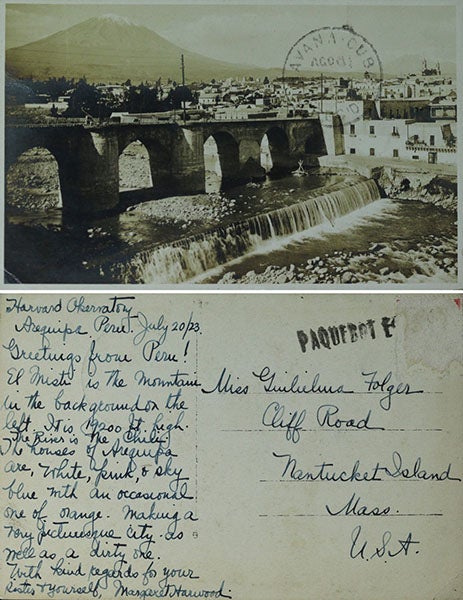 HAVANA-CUB
AGO
Harvard Observatory
Arequipa Peru. July 20/23.
Greetings from Peru!
El Misti is the Mountain
in the background on the
left. It is 19200 ft. high.
The River is the Chili
The houses of Arequipa
are, White, pink, & sky
blue with an occasional
one of orange. Making a
very picturesque city. as
well as a dirty one.
With kind regards for your
sister & yourself, Margaret Harwood.
PAQUEBOT
Miss Guilielma Folger
Cliff Road
Nantucket Island
Mass.
U.S.A.